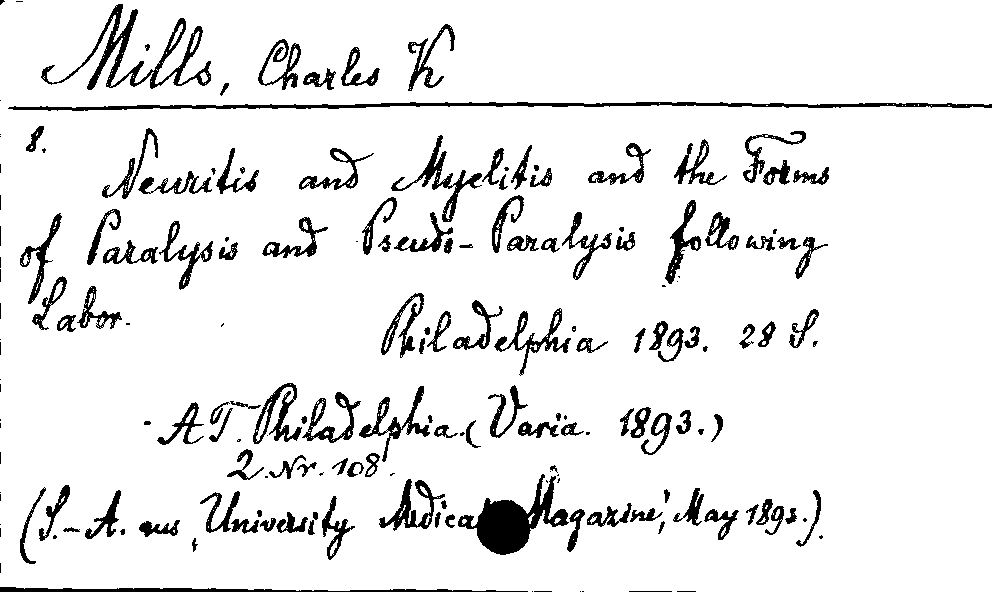 Mills, Charles K
8.
Neuritis and Myelitis and the Forms
of Paralysis and Pseudo-Paralysis following
Labor.
Philadelphia 1893. 28 S.
AT. Philadelphia. (Varia. 1893.)
2 Nr. 108.
(S.-A. aus ‚University Medical Magazine', May 1893.)